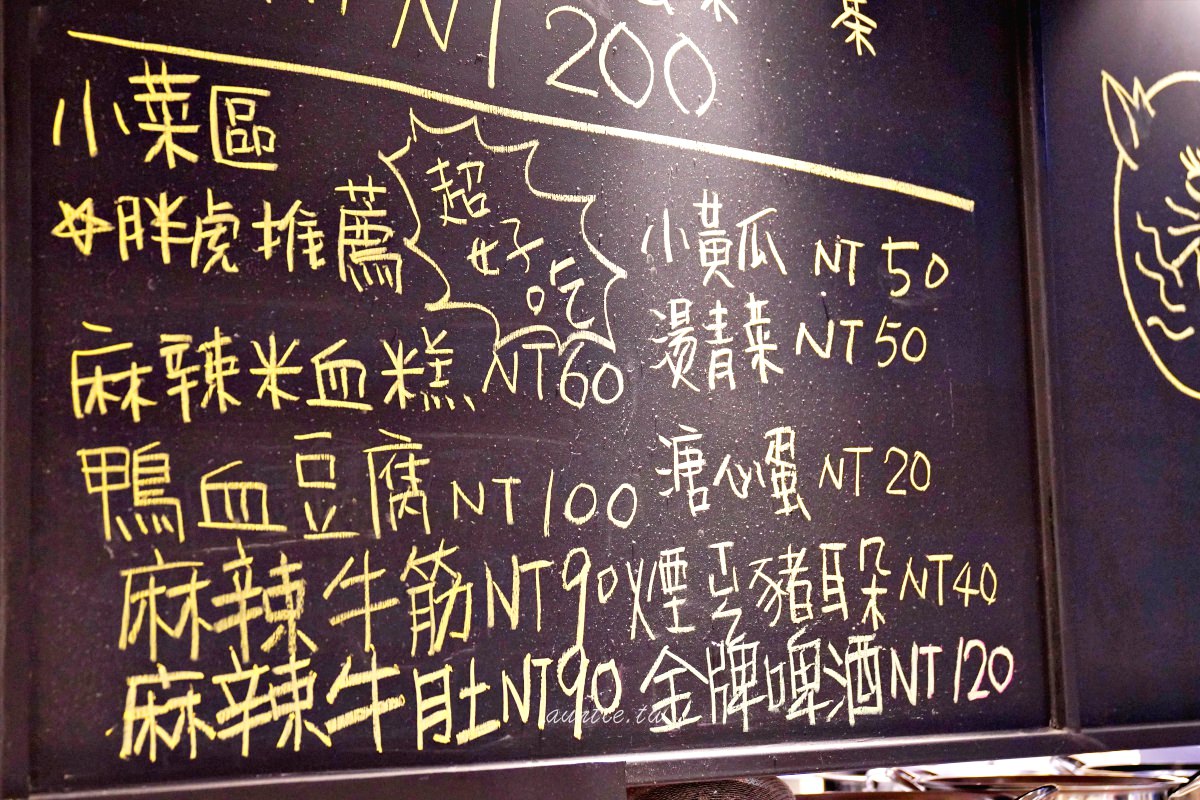 NT 200 茶
小菜區
☆胖虎推薦
超好吃
麻辣米血糕 NT60
鴨血豆腐 NT 100
麻辣牛筋 NT90
麻辣牛肚 NT90
小黃瓜 NT 50
燙青菜 NT 50
溏心蛋 NT 20
煙燻豬耳朵 NT40
金牌啤酒 NT 120